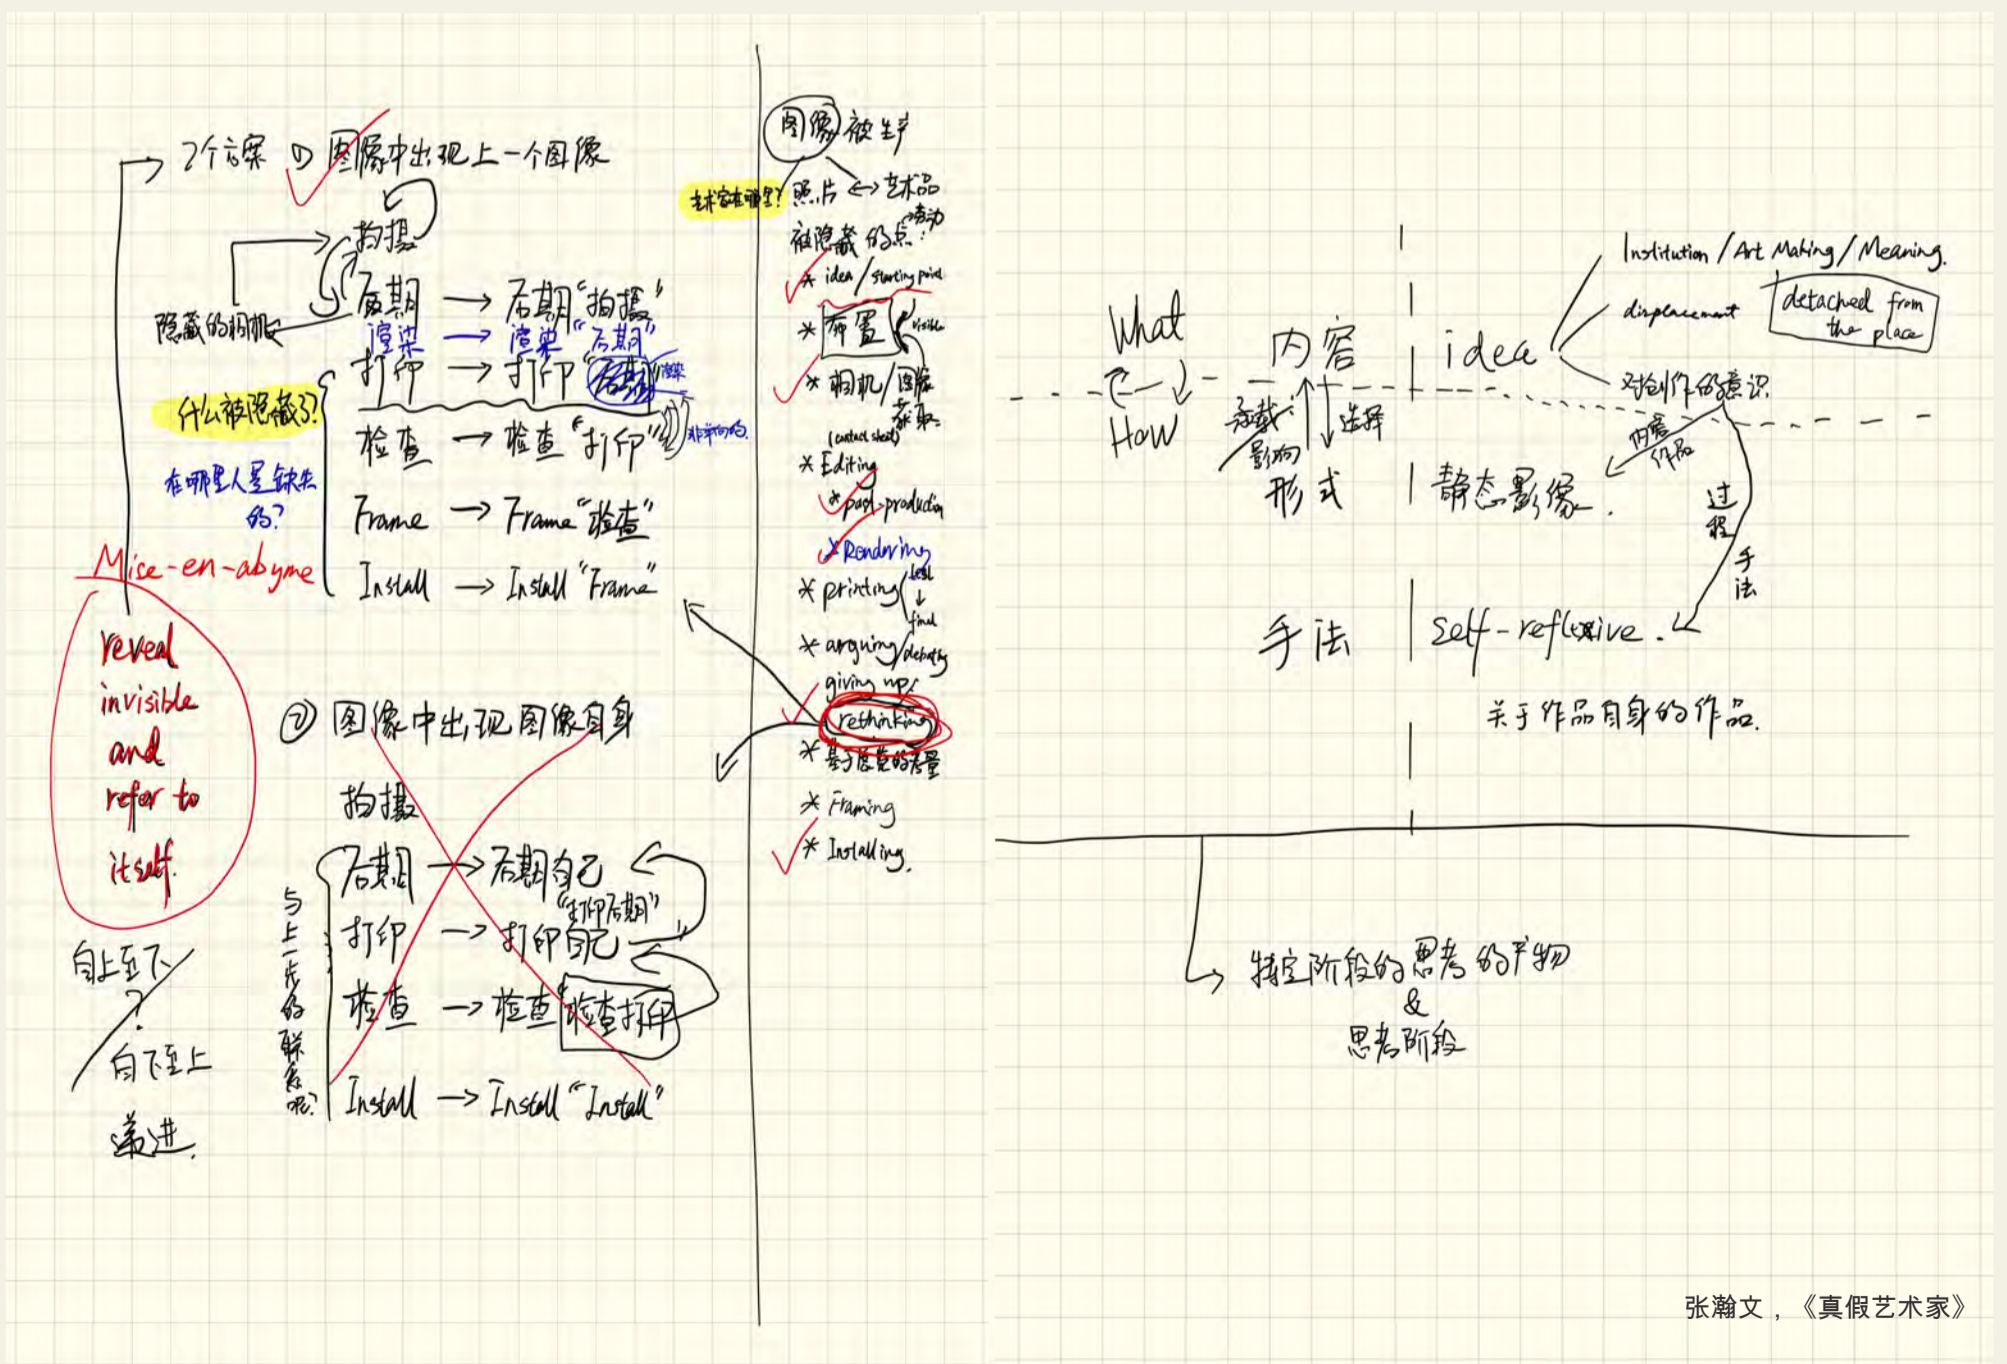 2个方案 ① 图像中出现上一个图像
拍摄
隐藏的相机
后期 → 后期“拍摄”
渲染 → 渲染“后期”
打印 → 打印“后期”渲染
什么被隐藏了?
检查 → 检查“打印”
非单向的.
在哪里人是缺失的?
Frame → Frame“检查”
Mise-en-abyme
Install → Install“Frame”
reveal
invisible
and
refer to
itself.
自上至下
?
自下至上
递进.
② 图像中出现图像自身
拍摄
后期 → 后期自己
“打印后期”
打印 → 打印自己
检查 → 检查 检查打印
Install → Install“Install”
与上一步的联系呢?
图像被生产
艺术家在哪里?
照片 ↔ 艺术品
劳动
被隐藏的点:
* idea / starting point
* 布置
visible
* 相机/图像获取
(contact sheet)
* Editing
* post-production
* Rendering
* printing
test
↓
final
* arguing/debating
giving up!
rethinking
* 基于感觉的考量
* Framing
* Installing.
What
How
内容
承载:
影响
选择
形式
手法
idea
Institution / Art Making / Meaning.
displacement
detached from
the place
对创作的意识
内容
作品
静态影像.
过程
手法
self-reflexive.
关于作品自身的作品.
特定阶段的思考的产物
&
思考阶段
张瀚文，《真假艺术家》